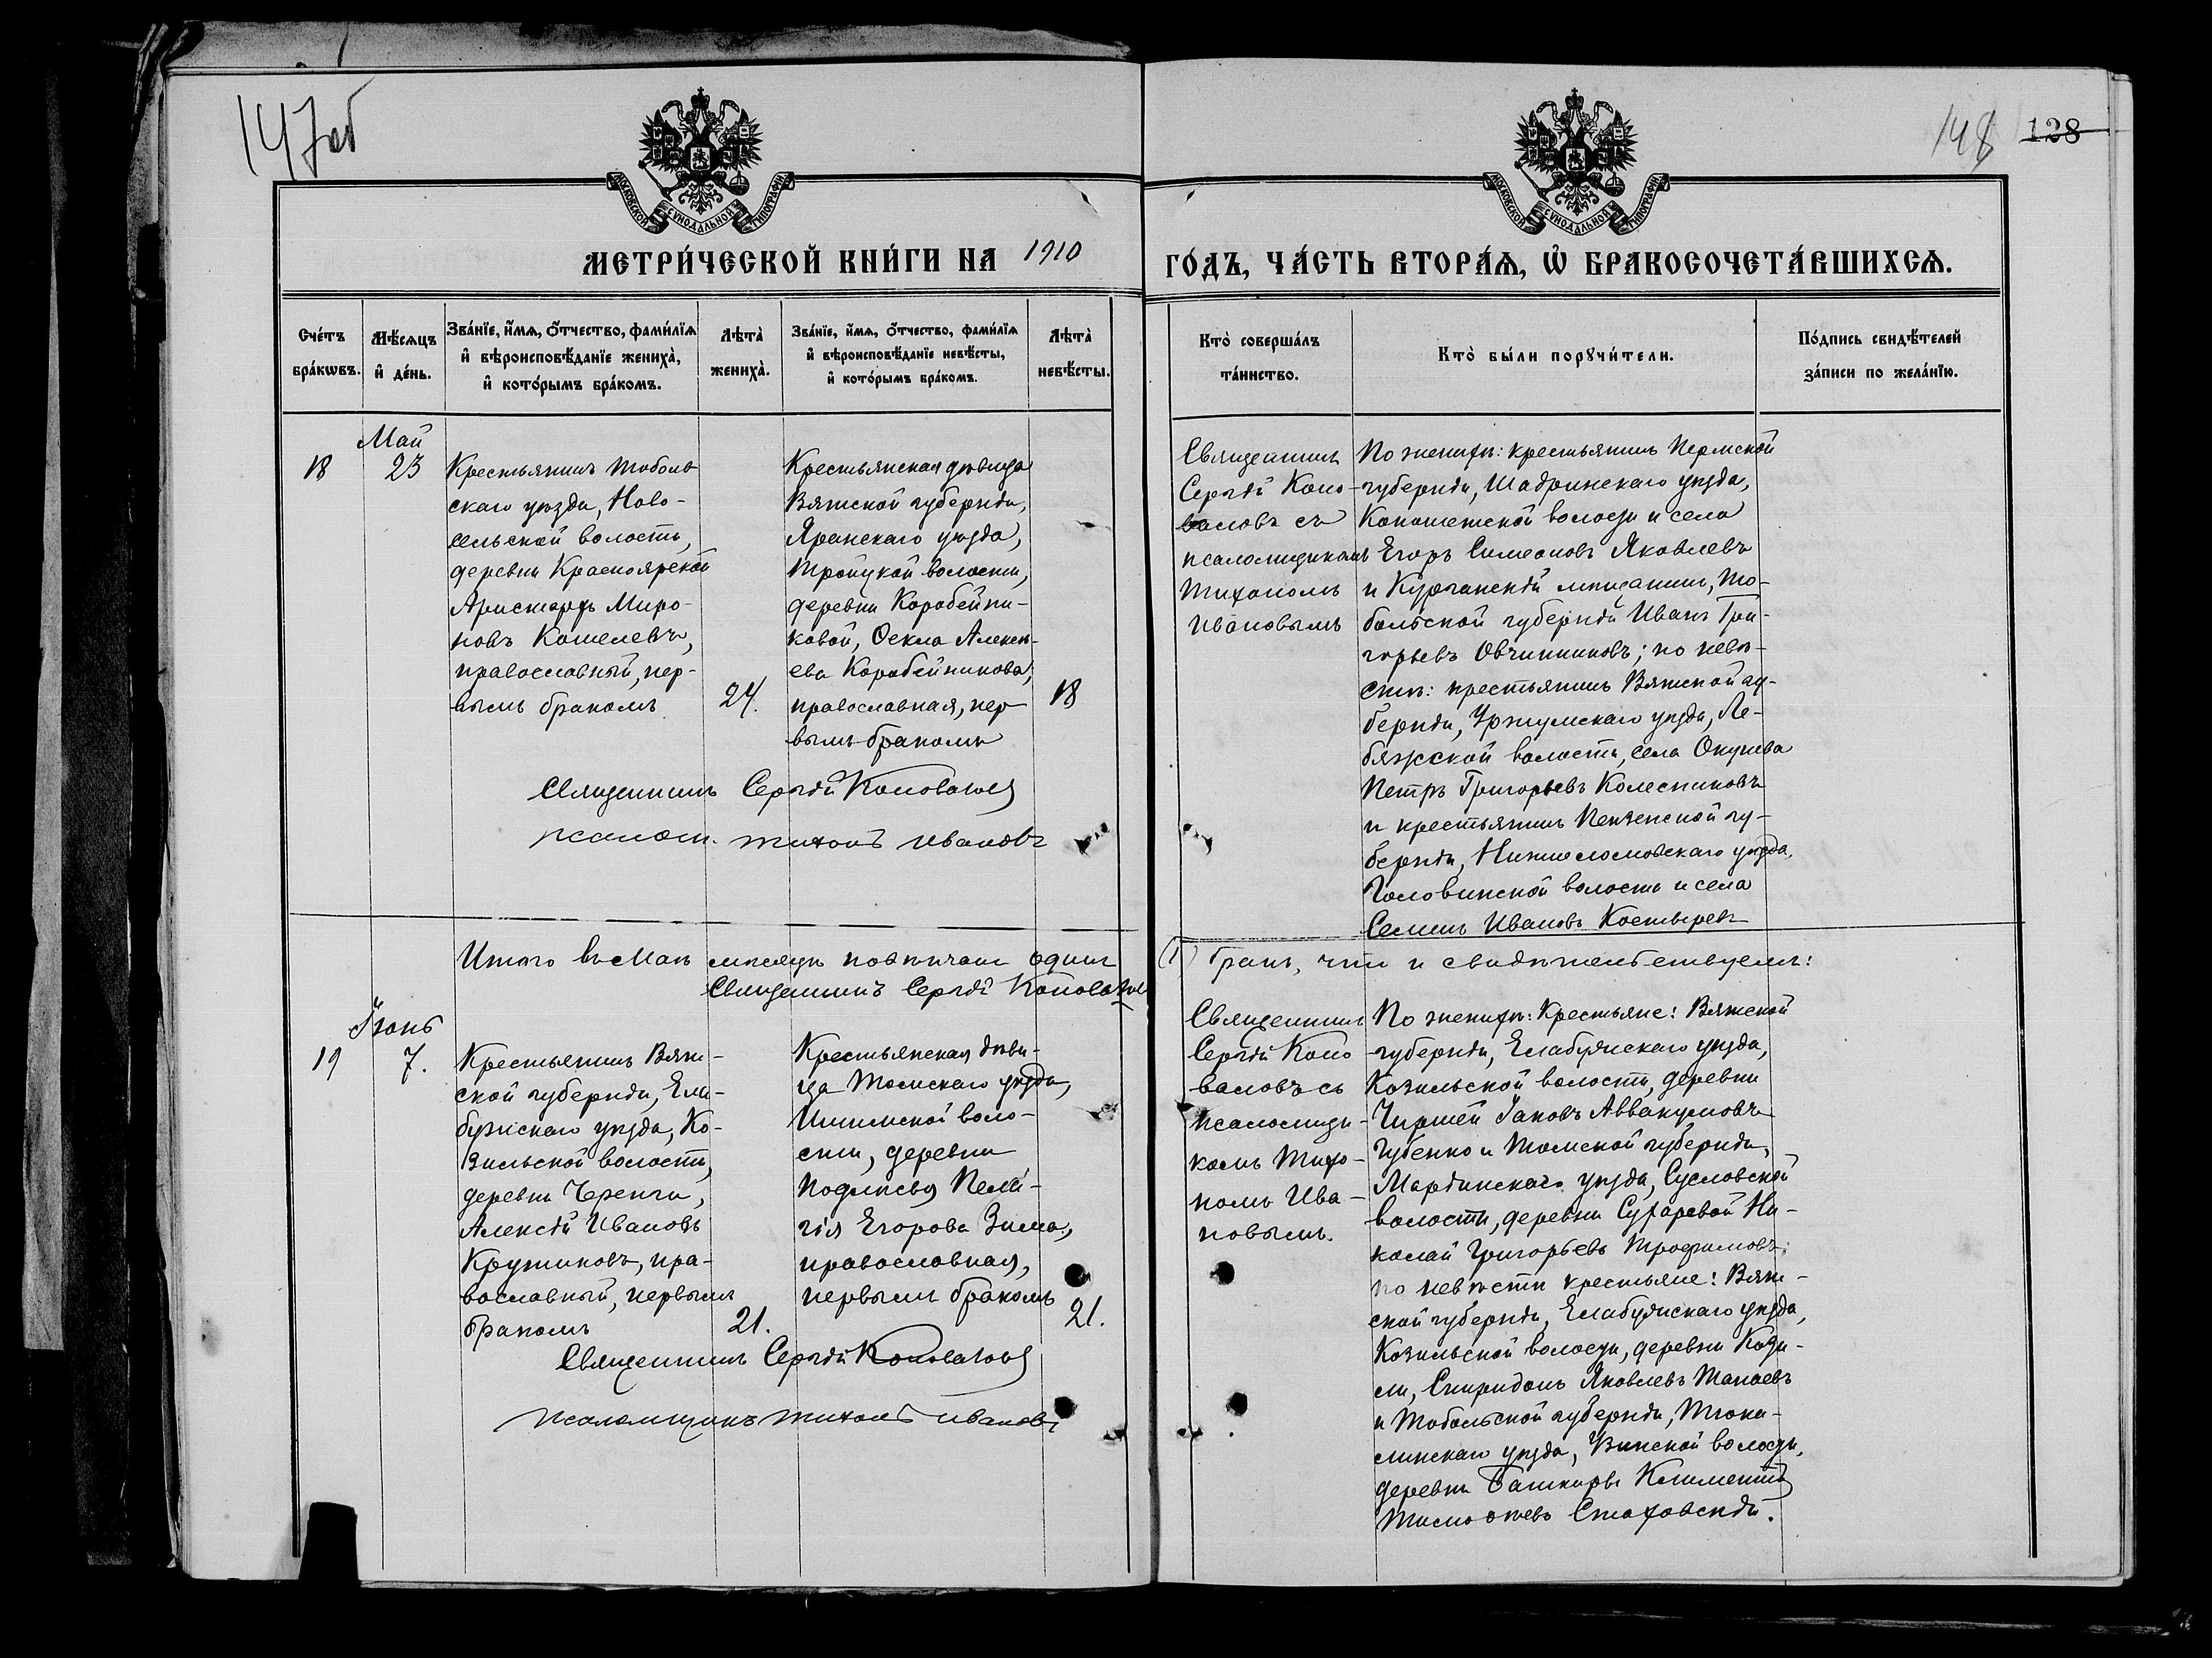 147об
148 128
МОСКОВСКОЙ СѴНОДАЛЬНОЙ ТИПОГРАФІИ
МОСКОВСКОЙ СѴНОДАЛЬНОЙ ТИПОГРАФІИ
МЕТРИ́ЧЕСКОЙ КНИ́ГИ НА 1910
ГО́ДЪ, ЧА́СТЬ ВТОРА́Я, Ѡ҆ БРАКОСОЧЕТА́ВШИХСЯ.
Сче́тъ
бра́кѡвъ.
Мѣ́сяцъ
и҆ де́нь.
Зва́нїе, и҆́мѧ, ѻ҆́тчество, фами́лїѧ
и҆ вѣроисповѣ́данїе жениха̀,
и҆ кото́рымъ бра́комъ.
Лѣ́та̀
жениха̀.
Зва́нїе, и҆́мѧ, ѻ҆́тчество, фами́лїѧ
и҆ вѣроисповѣ́данїе невѣ́сты,
и҆ кото́рымъ бра́комъ.
Лѣ́та̀
невѣ́сты.
Кто̀ соверша́лъ
та́инство.
Кто̀ бы́ли порꙋчи́тели.
По́дпись свидѣ́телей
за́писи по жела́нїю.
Май
18
23
Крестьянинъ Тоболь
скаго уѣзда, Ново-
сельской волости,
деревни Красноярской
Аристархъ Миро-
новъ Кошелевъ,
православный, пер-
вымъ бракомъ
24.
Крестьянская дѣвица
Вятской губерніи,
Яранскаго уѣзда,
Троицкой волости,
деревни Коробейни-
ковой, Ѳекла Алексѣ-
ева Коробейникова,
православная, пер-
вымъ бракомъ
18
Священникъ Сергій Коновалов
псалом. Тихонъ Ивановъ
Священникъ
Сергій Коно-
валовъ съ
псаломщикомъ
Тихономъ
Ивановымъ
По женихѣ: крестьянинъ Пермской
губерніи, Шадринскаго уѣзда,
волости и села
Егоръ Симеоновъ Яковлевъ
и Курганскій мѣщанинъ, То-
больской губерніи Иванъ Гри-
горьевъ Овчинниковъ; по невѣ-
стѣ: крестьянинъ Вятской гу-
берніи, Уржумскаго уѣзда, Ле-
бяжской волости, села Окунева
Петръ Григорьевъ Колесниковъ
и крестьянинъ Пензенской гу-
берніи, Нижнеломовскаго уѣзда,
Головинской волости и села
Ивановъ Костыревъ
Итого въ Маѣ мѣсяцѣ повѣнчанъ одинъ (1) бракъ, что и свидѣтельствуемъ:
Священникъ Сергій Коновалов
Іюнь
19
7.
Крестьянинъ Вят-
ской губерніи, Ела-
бужскаго уѣзда, Ко-
зильской волости,
деревни Черенги,
Алексѣй Ивановъ
Кружиковъ, пра-
вославный, первымъ
бракомъ
21.
Крестьянская дѣви-
ца Томскаго уѣзда,
Ишимской воло-
сти, деревни
Пела-
гія Егорова Зима,
православная,
первымъ бракомъ
21.
Священникъ Сергій Коновалов
Псаломщикъ Тихонъ Ивановъ
Священникъ
Сергій Коно
валовъ съ
псаломщи-
комъ Тихо-
номъ Ива-
новымъ.
По женихѣ: Крестьяне: Вятской
губерніи, Елабужскаго уѣзда,
Козильской волости, деревни
Чиршей Іаковъ Аввакумовъ
Губенко и Томской губерніи,
Маріинскаго уѣзда, Сусловской
волости, деревни Сухаревой Ни-
колай Григорьевъ Трофимовъ;
по невѣстѣ крестьяне: Вят-
ской губерніи, Елабужскаго уѣзда,
Козильской волости, деревни Кози-
ли, Спиридонъ Яковлевъ
и Тобольской губерніи, Тюка-
линскаго уѣзда, волости,
деревни Башкиры Климентій
Тимоѳеевъ Стаховскій.